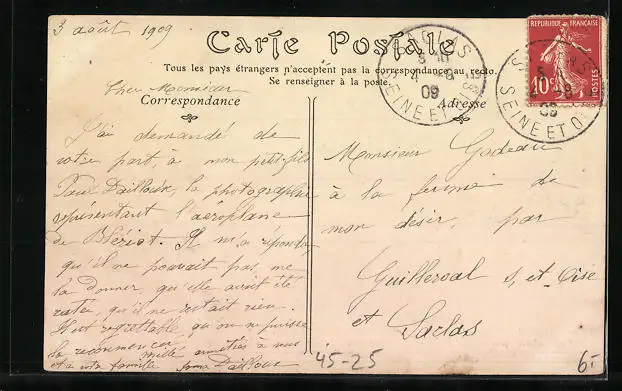 3 août 1909
Carte Postale
Tous les pays étrangers n'acceptent pas la correspondance au recto.
Se renseigner à la poste.
Cher Monsieur
Correspondance
J'ai demandé de
votre part à mon petit-fils
Paul Dailloux, la photographie
représentant l'aéroplane
de Blériot. Il m'a répondu
qu'il ne pouvait pas me
la donner qu'elle avait été
ratée, qu'il ne restait rien.
Il est regrettable qu'on ne puisse
la recommencer mille amitiés à vous
et à votre famille Dailloux
Adresse
Monsieur Godeau
à la ferme de
mon désir, par
Guillerval S, et-Oise
et Saclas
RÉPUBLIQUE FRANÇAISE
10c
POSTES
SACLAS
09
SEINE ET OISE
09
SEINE ET O
45-25
6-